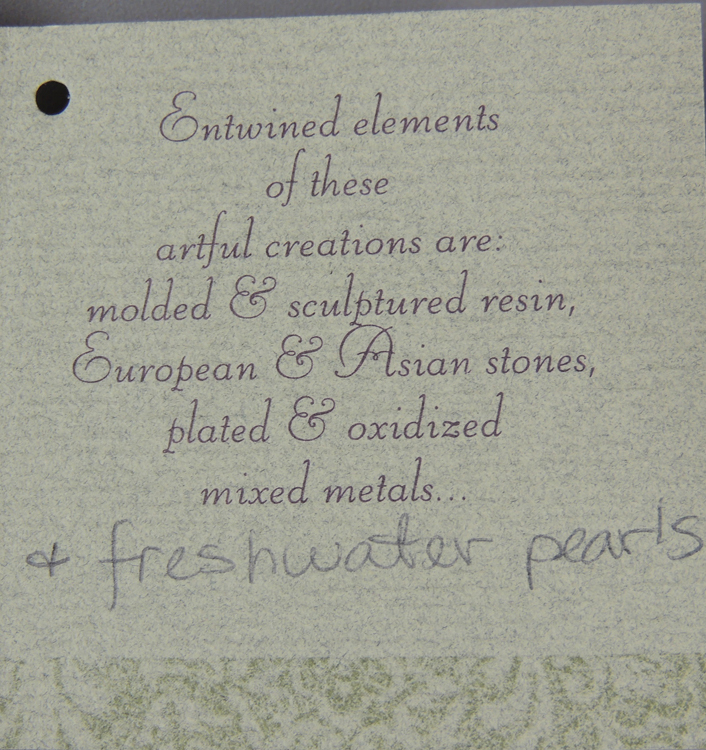 Entwined elements
of these
artful creations are:
molded & sculptured resin,
European & Asian stones,
plated & oxidized
mixed metals...
+ freshwater pearls